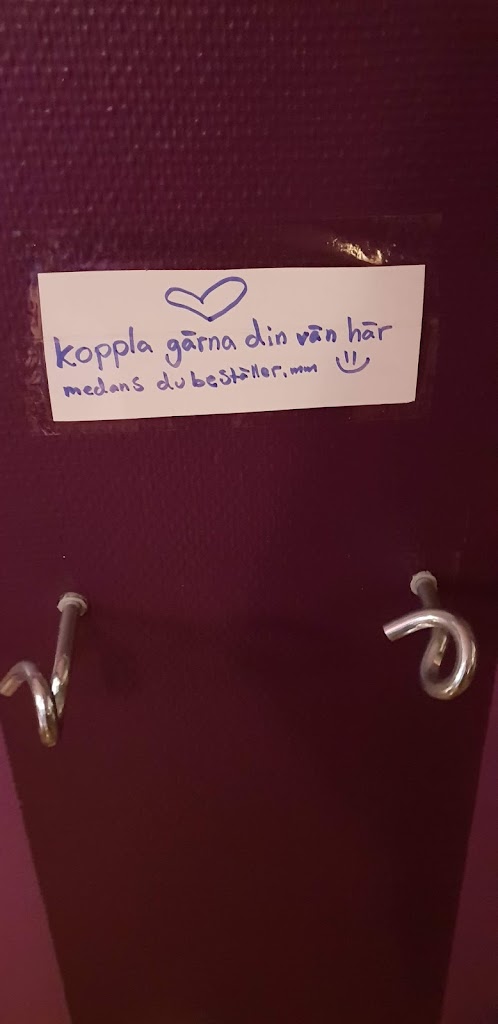 koppla gärna din vän här
medans du beställer, mm